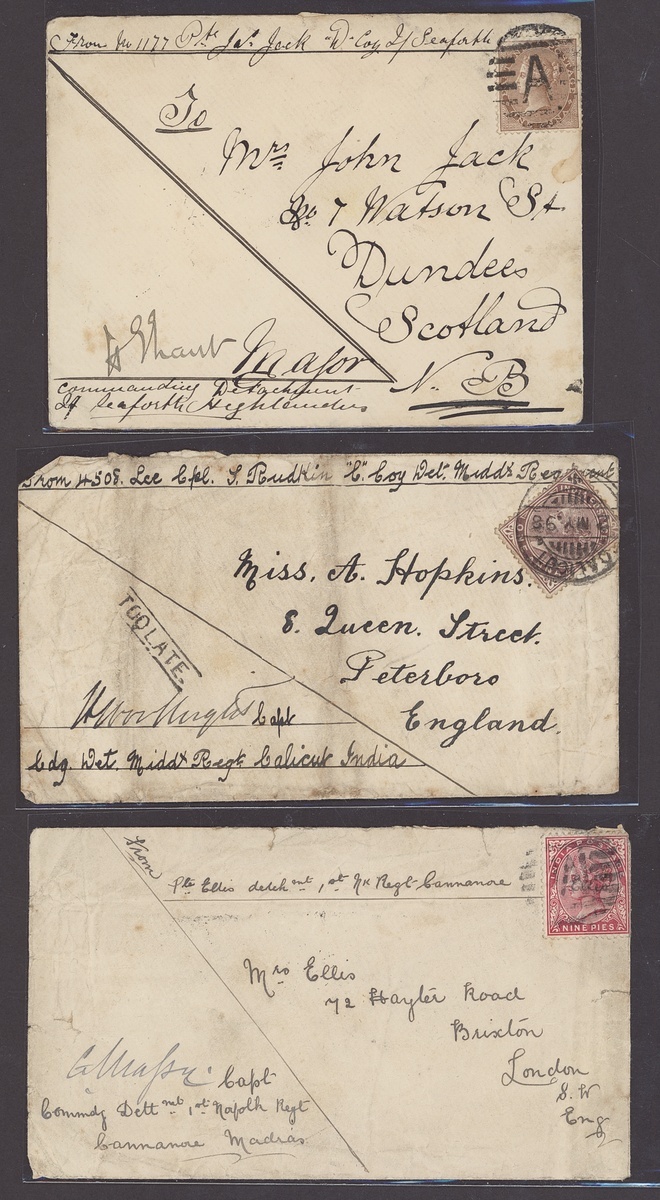 From No 1177 Pte Jas Jack "D" Coy 2/ Seaforth
A
To
Mrs John Jack
No 7 Watson St
Dundee
Scotland
N. B
Major
Commanding Detachment
2/ Seaforth Highlanders
From 4508. Lce Cpl. S. Rudkin "C" Coy Det. Middx Regiment
CALICUT
MY. 98
Miss. A. Hopkins.
8. Queen. Street.
Peterboro
England.
TOO LATE.
Capt
Cdg. Det. Middx Regt. Calicut India
From
Pte Ellis detchmnt, 1st Nk Regt Cannanore
INDIA POSTAGE
NINE PIES
Mrs Ellis
72 Hayter Road
Brixton
London
S. W
Eng
Capt
Commdg Dettmnt 1st Nafolk Regt
Cannanore Madras